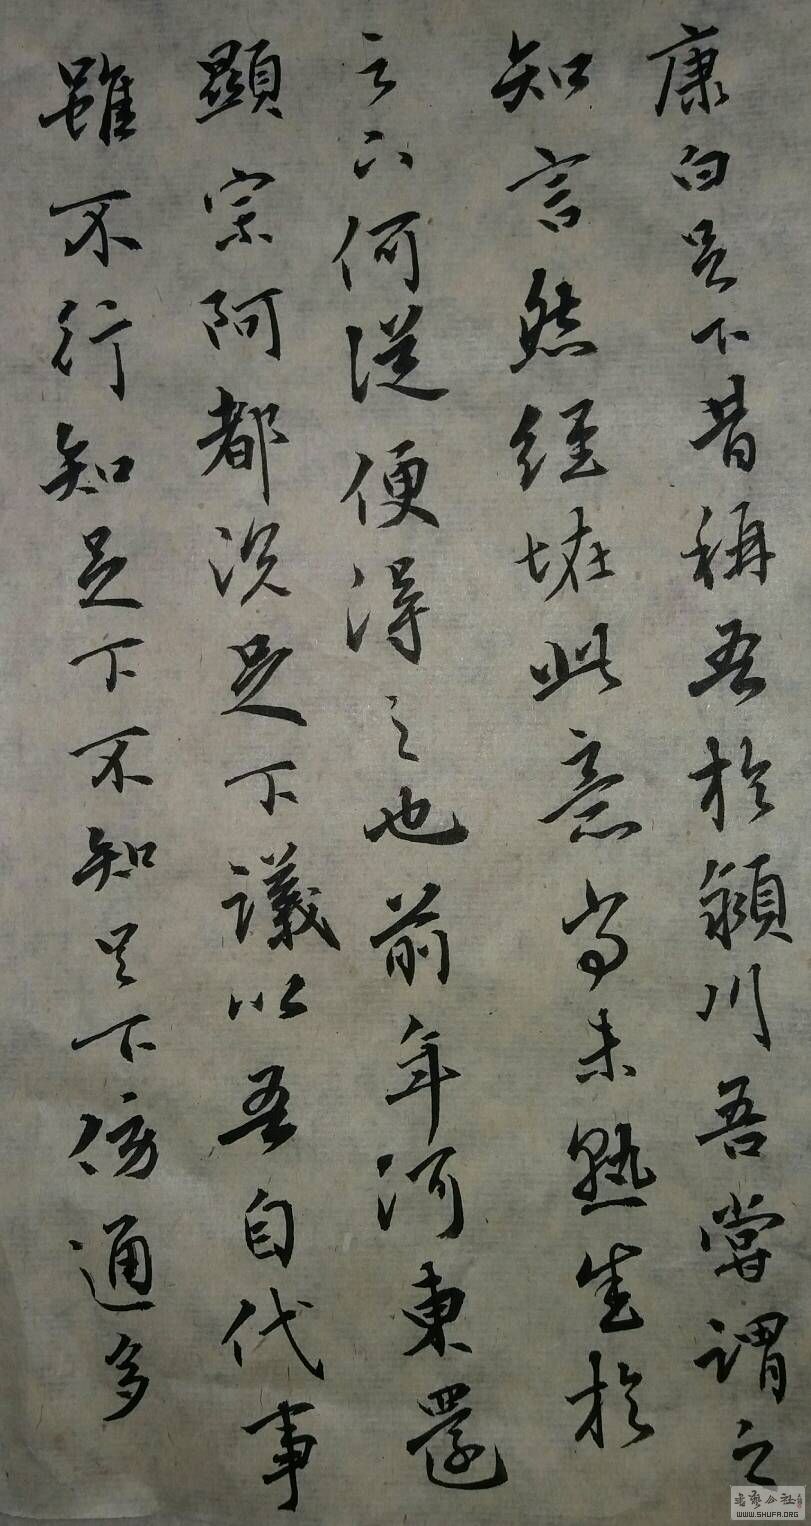 康白足下昔稱吾於潁川吾嘗謂之
知言然經恠此意尚未熟於
足下何從便得之也前年河東還
顯宗阿都說足下議以吾自代事
雖不行知足下不知足下傍通多
书艺公社
WWW.SHUFA.ORG